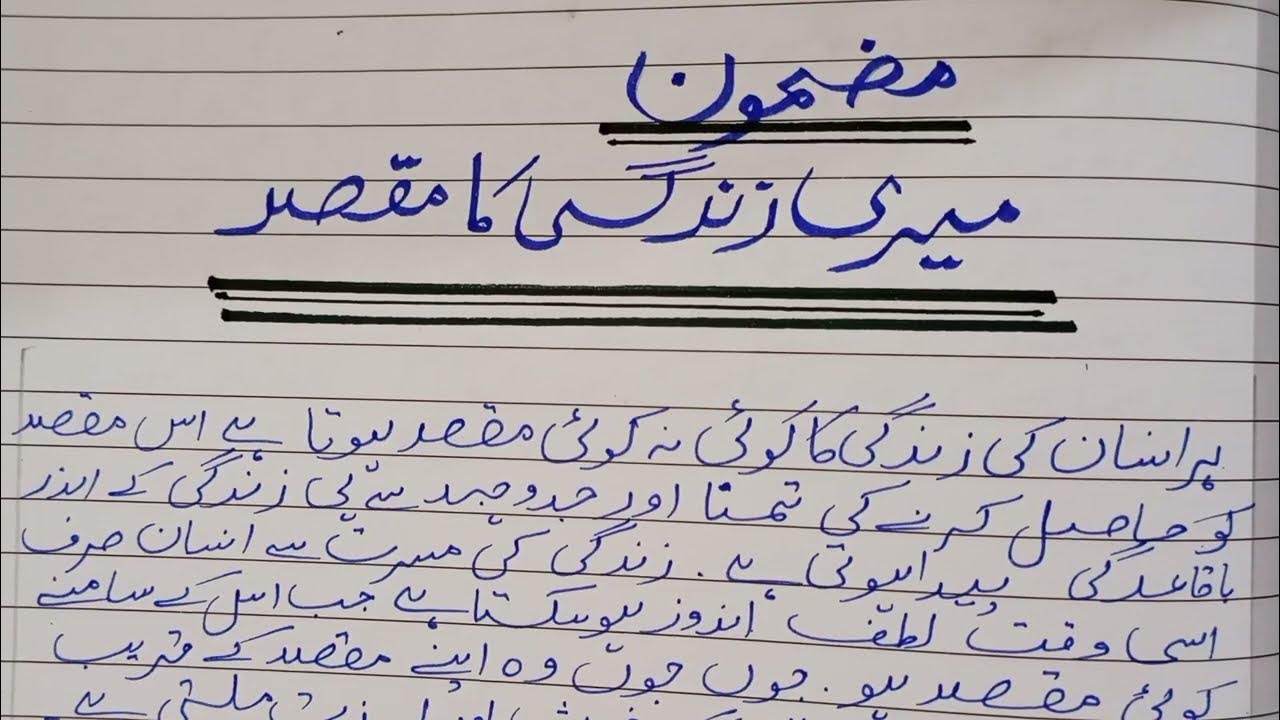 مضمون
میری زندگی کا مقصد
ہر انسان کی زندگی کا کوئی نہ کوئی مقصد ہوتا ہے اس مقصد
کو حاصل کرنے کی تمنا اور جدوجہد سے ہی زندگی کے اندر
باقاعدگی پیدا ہوتی ہے۔ زندگی کی مسرت سے انسان صرف
اسی وقت لطف اندوز ہوسکتا ہے جب اس کے سامنے
کوئی مقصد ہو۔ جوں جوں وہ اپنے مقصد کے قریب
ملتی ہے